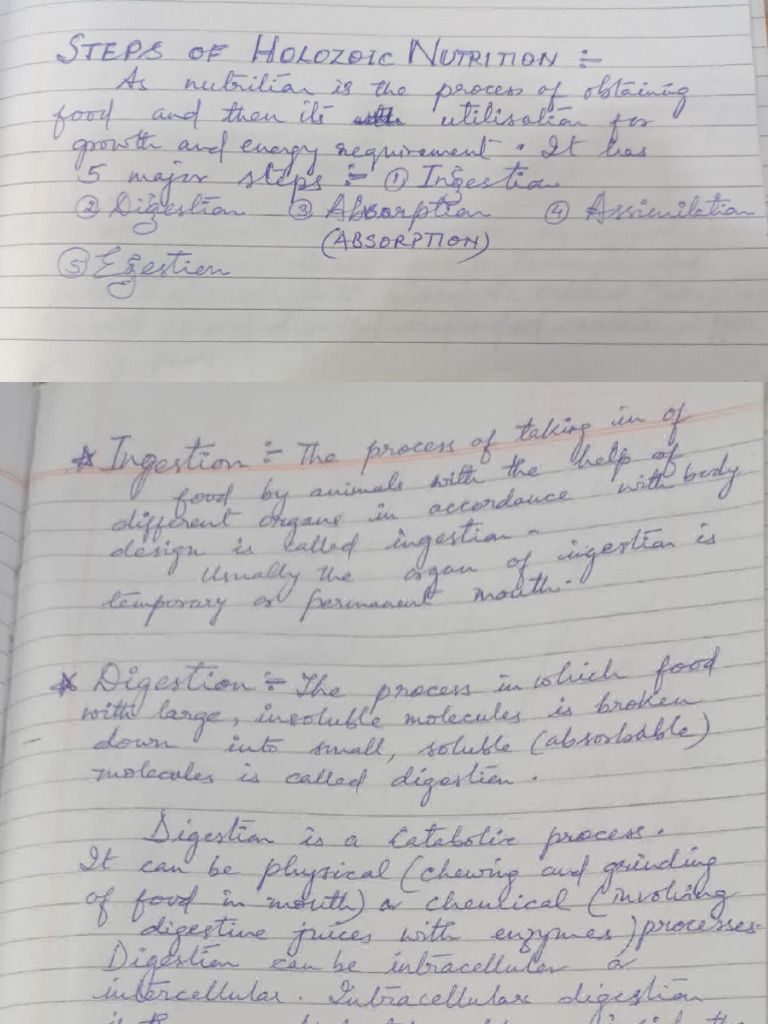 STEPS OF HOLOZOIC NUTRITION :-
As nutrition is the process of obtaining
food and then its utilisation for
growth and energy requirement. It has
5 major steps :- ① Ingestion
② Digestion ③ Absorption ④ Assimilation
(ABSORPTION)
⑤ Egestion
* Ingestion :- The process of taking in of
food by animals with the help of
different organs in accordance with body
design is called ingestion.
Usually the organ of ingestion is
temporary or permanent mouth.
* Digestion :- The process in which food
with large, insoluble molecules is broken
down into small, soluble (absorbable)
molecules is called digestion.
Digestion is a Catabolic process.
It can be physical (chewing and grinding
of food in mouth) or chemical (involving
digestive juices with enzymes) processes.
Digestion can be intracellular or
intercellular. Intracellular digestion
is the